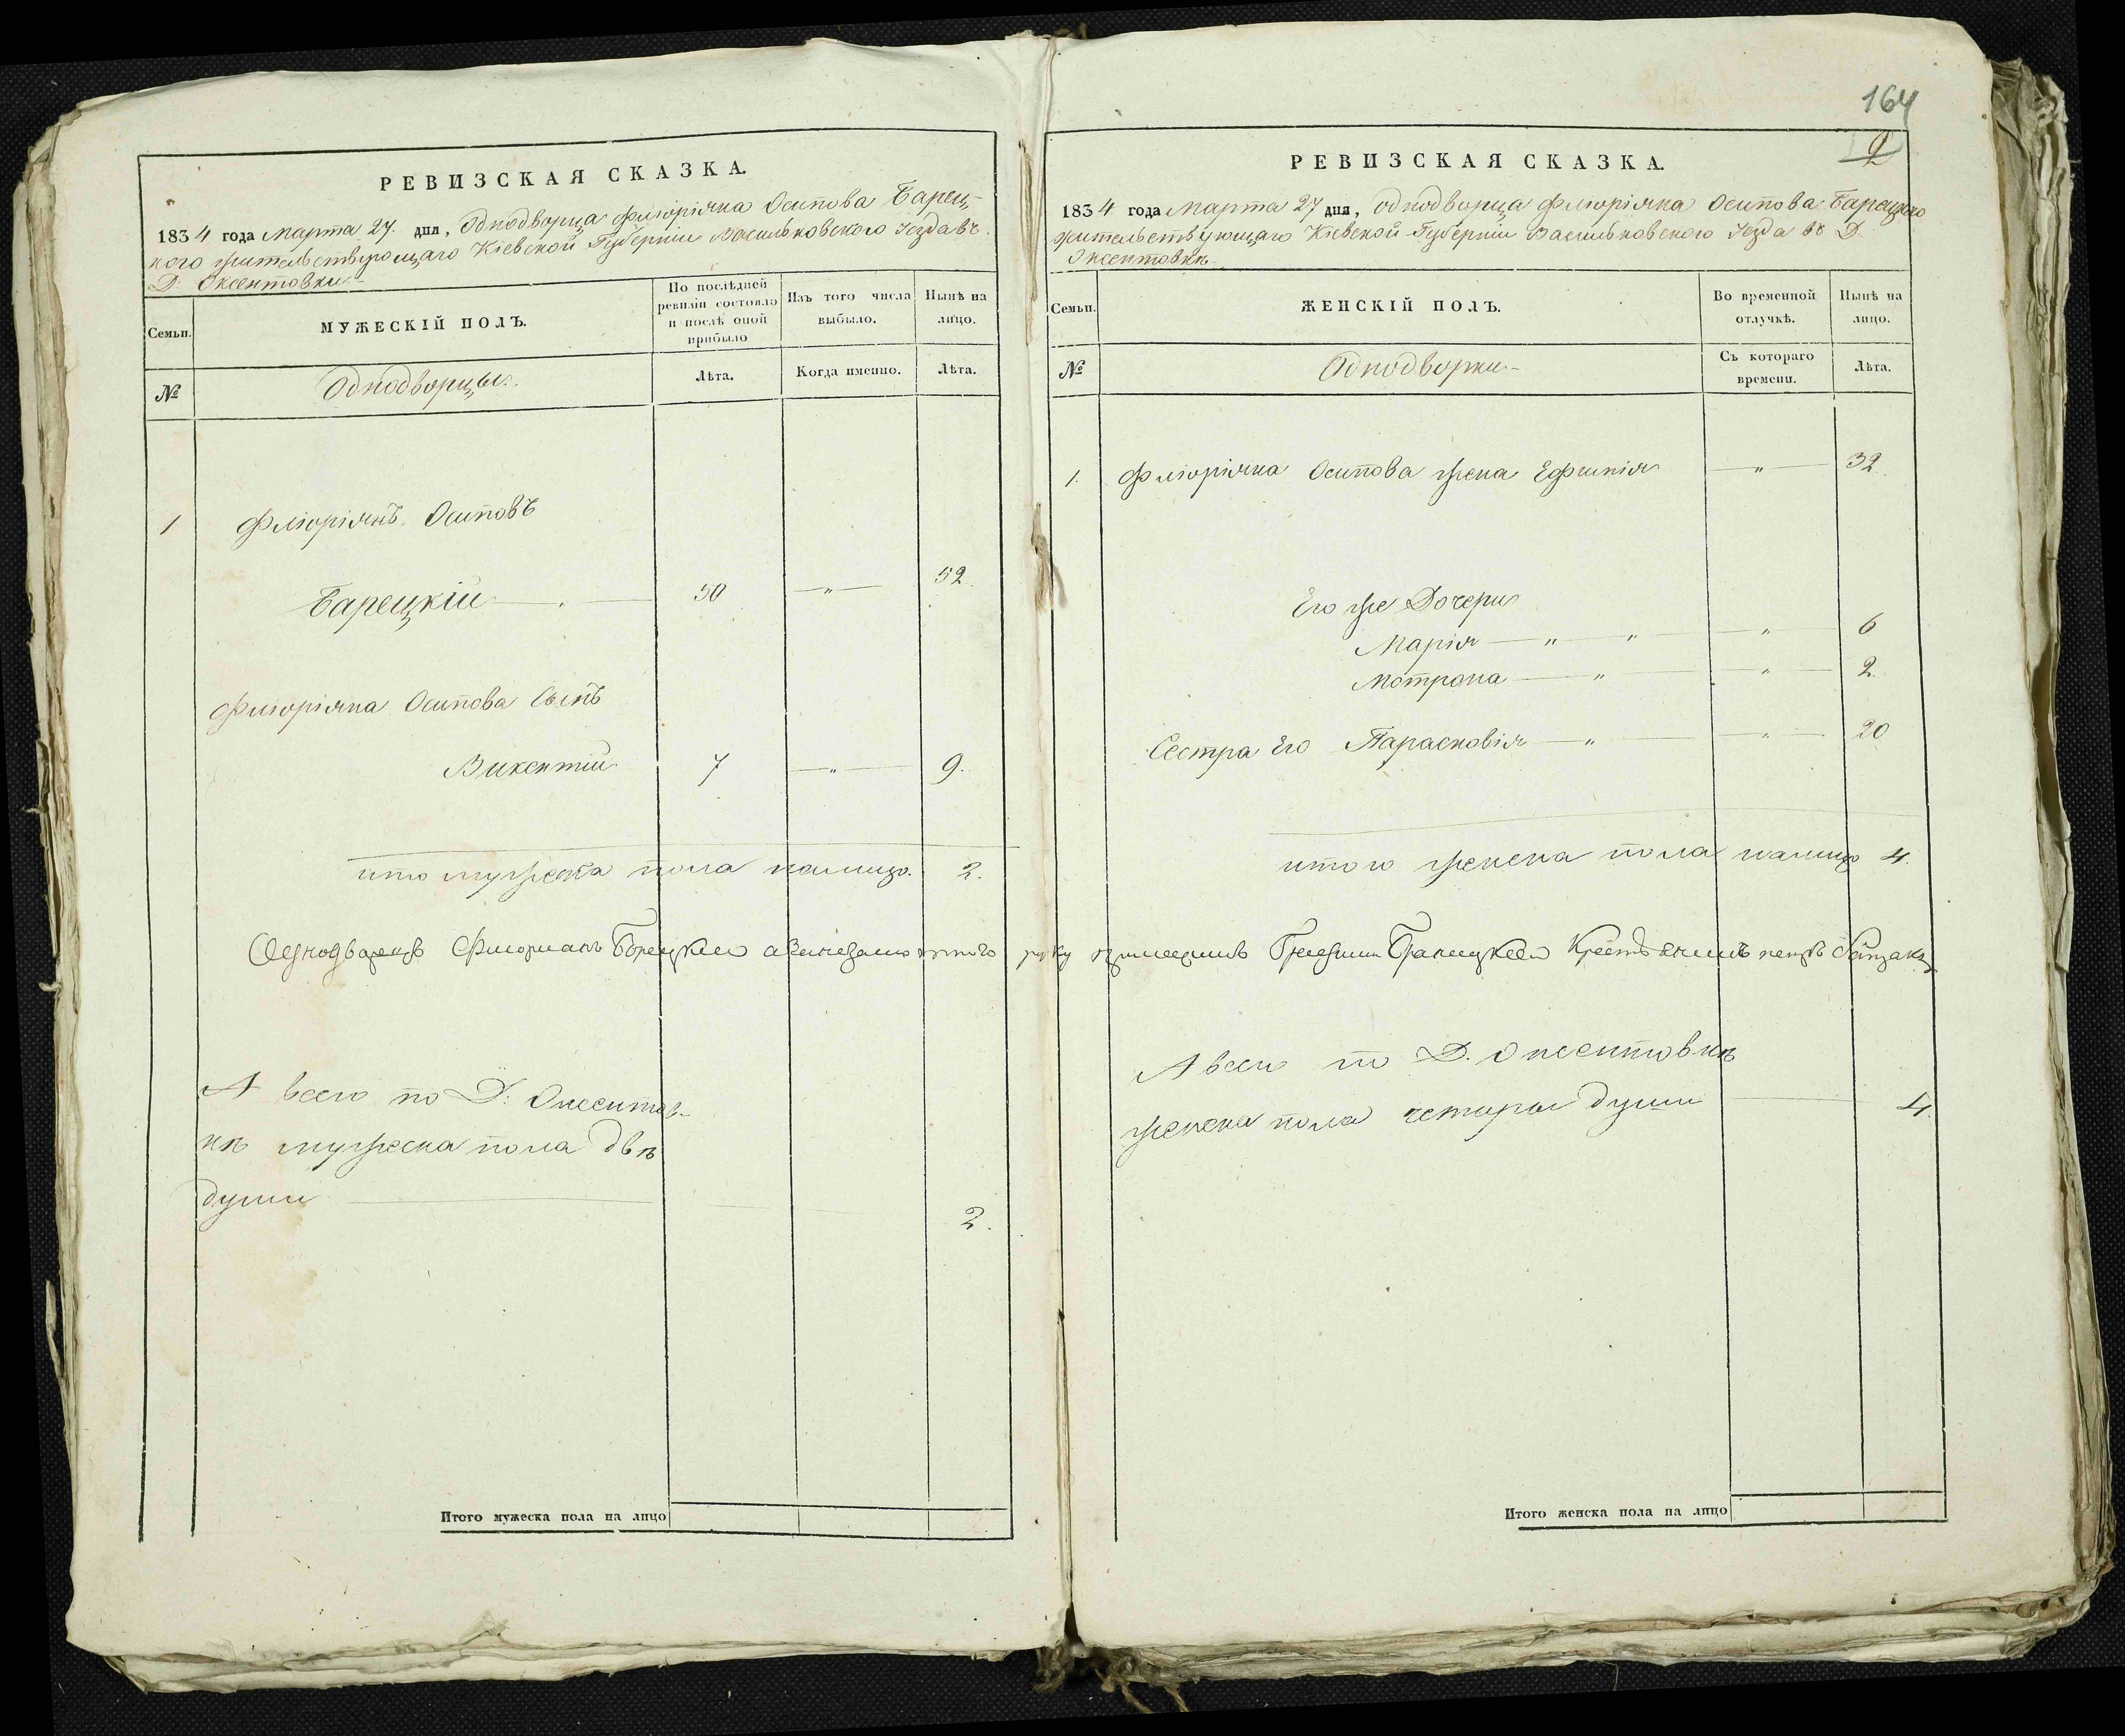 РЕВИЗСКАЯ СКАЗКА.
1834 года Марта 27. дня, Однодворца Флюріяна Осипова Барец-
кого жительствующаго Кіевской Губерніи Васильковского Уезда въ
Д. Оксентовки
Семьи.
МУЖЕСКІЙ ПОЛЪ.
По послѣдней ревизіи состояло и послѣ оной прибыло
Изъ того числа выбыло.
Нынѣ на лицо.
№
Однодворцы.
Лѣта.
Когда именно.
Лѣта.
1 Флюріянъ Осиповъ
Барецкій 50 — " — 52.
Флюріяна Осипова Сынъ
Викентій 7 — " — 9.
итого мужеска пола налицо. 2.
А всего по Д: Оксентов-
кѣ мужеска пола двѣ
души 2.
Итого мужеска пола на лицо
164
2
РЕВИЗСКАЯ СКАЗКА.
1834 года Марта 27 дня, однодворца Флюріяна Осипова Барецкого
жительствующаго Кіевской Губерніи Васильковского Уезда въ Д.
Оксентовкѣ
Семьи.
ЖЕНСКІЙ ПОЛЪ.
Во временной отлучкѣ.
Нынѣ на лицо.
№
Однодворки.
Съ котораго времени.
Лѣта.
1. Флюріяна Осипова жена Ефимія — " — 32
Его же Дочери
Марія — " — " — " — 6
Мотрона — " — " — 2
Сестра Его Парасковія — " — " — 20
итого женска пола налицо 4.
Однодворецъ Флюріанъ Борецкий
А всего по Д. Оксентовкѣ
женска пола четыры души 4.
Итого женска пола на лицо